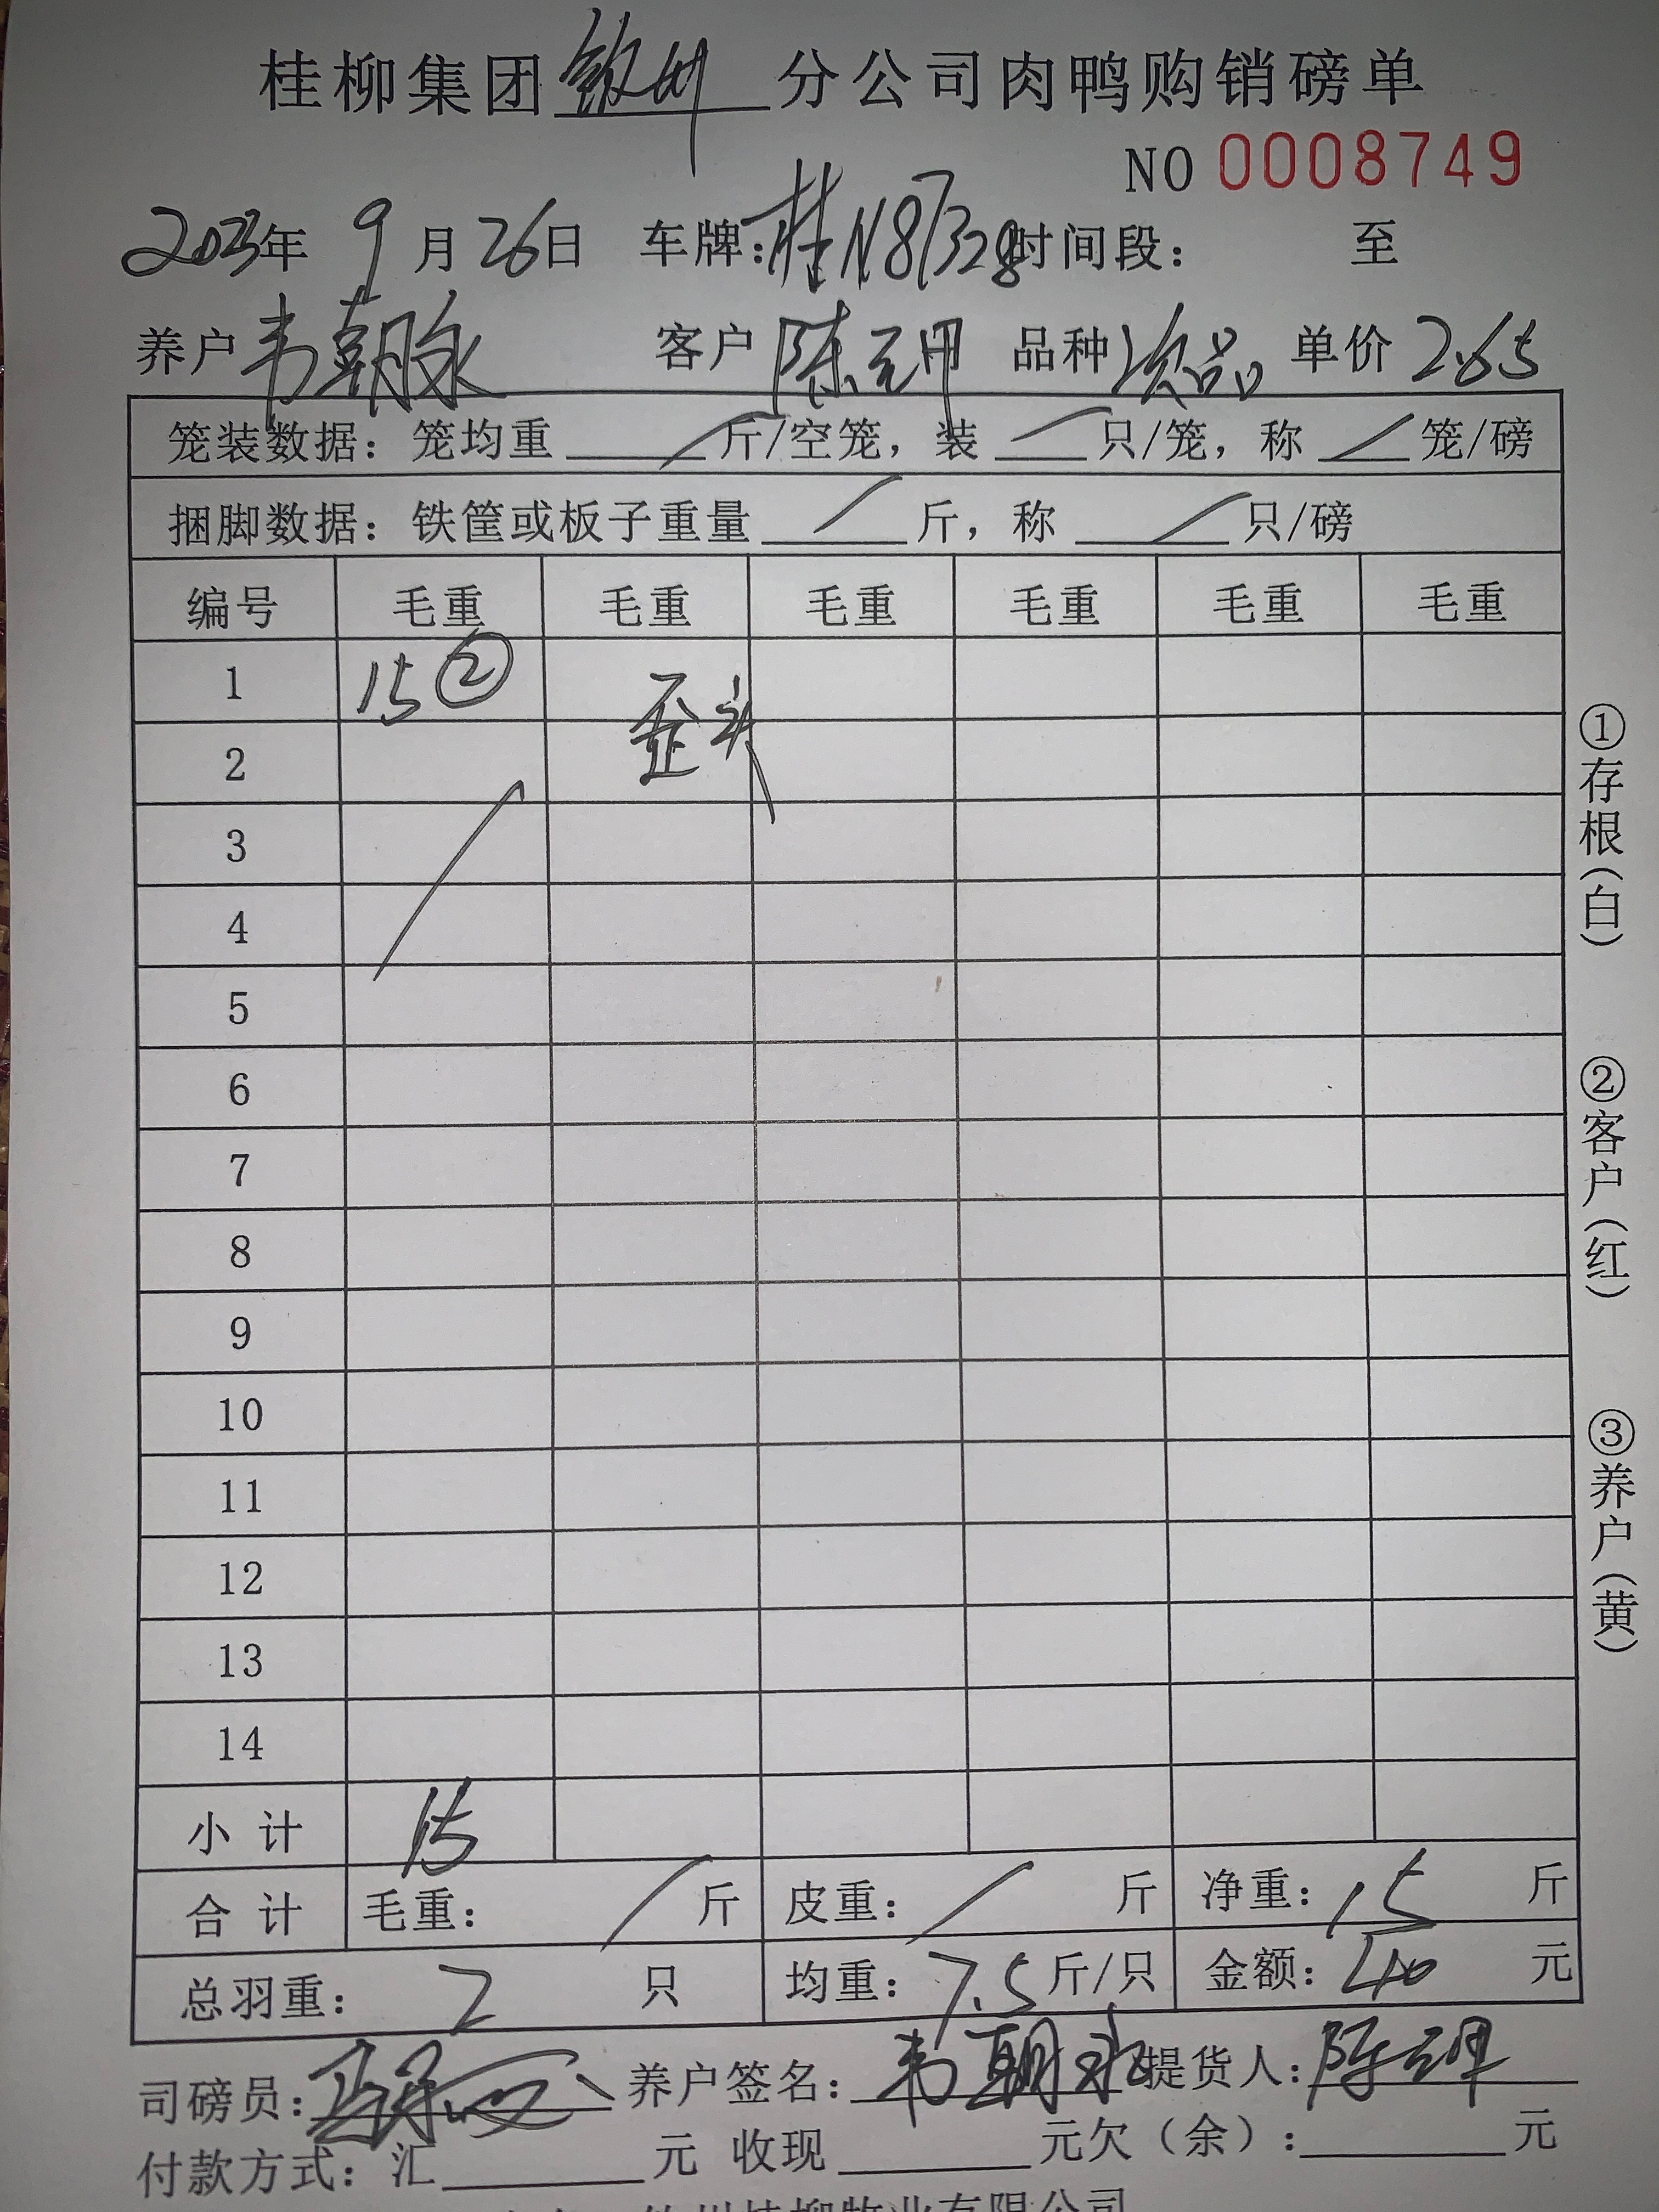 桂柳集团钦州分公司肉鸭购销磅单
NO 0008749
2023年 9月26日 车牌：桂N87328 时间段： 至
养户 韦朝永 客户 陈 品种 次品 单价 2.65
笼装数据：笼均重 / 斤/空笼，装 / 只/笼，称 / 笼/磅
捆脚数据：铁筐或板子重量 / 斤，称 / 只/磅
编号 毛重 毛重 毛重 毛重 毛重 毛重
1 15 ② 歪头
2
3
4
5
6
7
8
9
10
11
12
13
14
小计 15
合计 毛重： / 斤 皮重： / 斤 净重：15 斤
总羽重： 2 只 均重：7.5斤/只 金额：40 元
司磅员： 养户签名：韦朝永 提货人：陈
付款方式：汇 元 收现 元欠（余）： 元
钦州桂柳牧业有限公司
①存根（白）
②客户（红）
③养户（黄）